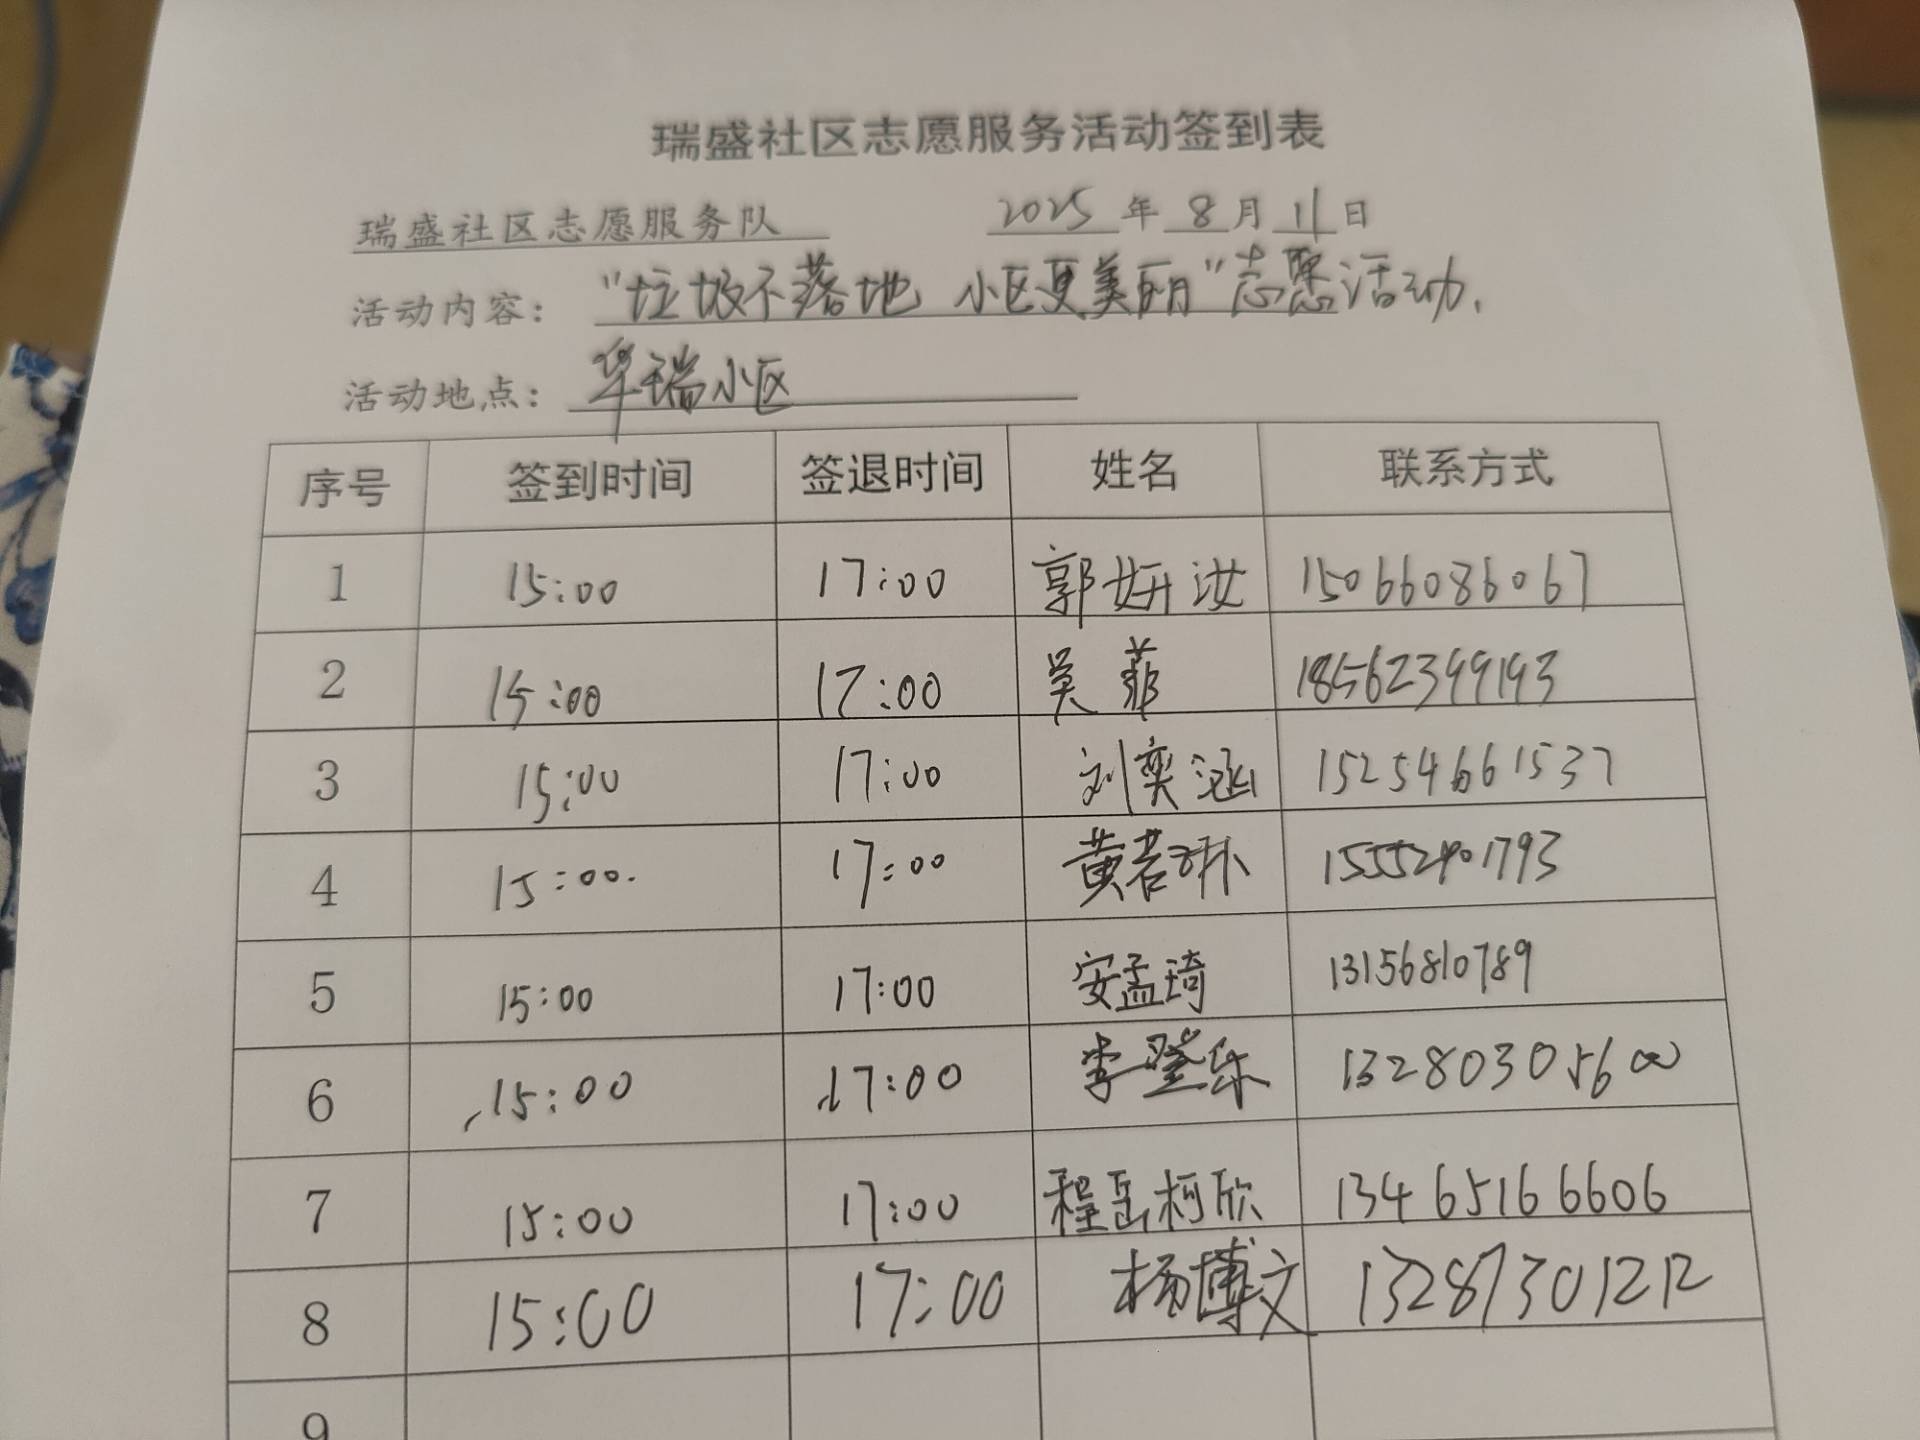 瑞盛社区志愿服务活动签到表
瑞盛社区志愿服务队 2025年8月11日
活动内容：“垃圾不落地 小区更美丽”志愿活动.
活动地点：华瑞小区
序号 签到时间 签退时间 姓名 联系方式
1 15:00 17:00 郭妍汝 15066086067
2 15:00 17:00 吴菲 18562399193
3 15:00 17:00 刘奕涵 15254661537
4 15:00. 17:00 黄若琳 15552901793
5 15:00 17:00 安孟琦 13156810789
6 15:00 17:00 李登乐 13280305600
7 15:00 17:00 程岳柯欣 13465166606
8 15:00 17:00 杨博文 13287301212
9